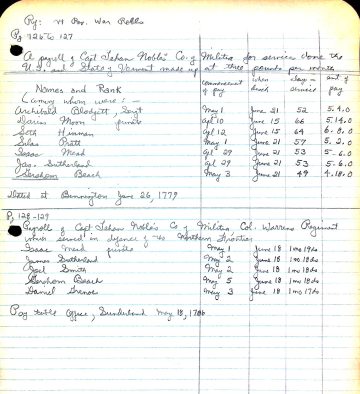 Pg: Vt Rev. War Rolls
Pg 126 to 127
A payroll of Capt Tehan Noble's Co. of Militia for service done the
U.S. and State of Vermont made up at three pounds per month
commencement of pay when disch days service amt of pay
Names and Rank
(among whom were: —
Archibald Blodgett, Sergt May 1 June 21 52 5.4.0
Darius Moon private apl 10 June 15 66 5.14.0
Seth Hinman apl 12 June 15 64 6.8.0
Silas Pratt May 1 June 21 57 5.2.0
Isaac Mead apl 29 June 21 53 5-6.0
Jas. Sutherland apl 29 June 21 53 5.6.0
Gershom Beach May 3 June 21 49 4.18.0
Dated at Bennington June 26, 1779
Pg 128-129
Payroll of Capt Tehan Noble's Co of Militia, Col. Warrens Regiment
which served in defence of the Northern Frontier
Isaac Mead private May 1 June 18 1 mo 19 da
James Sutherland May 2 June 18 1 mo 18 da
Joel Smith May 2 June 18 1 mo 18 da
Gershom Beach May 5 June 18 1 mo 18 da
Daniel May 3 June 18 1 mo 17 da
Pay table Office, Sunderland May 18, 1786